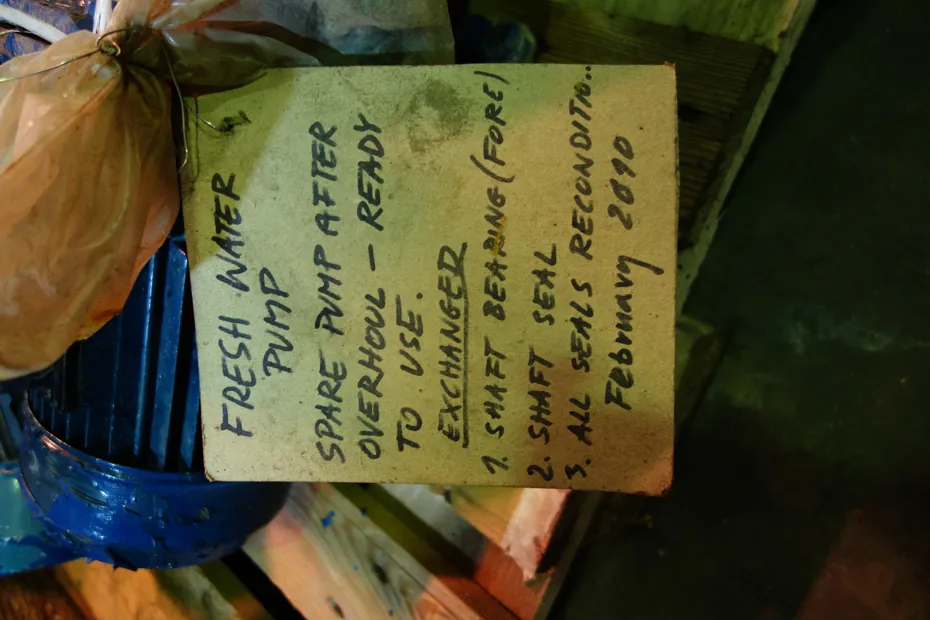 FRESH WATER
PUMP
SPARE PUMP AFTER
OVERHOUL – READY
TO USE.
EXCHANGED
1. SHAFT BEARING (FORE)
2. SHAFT SEAL
3. ALL SEALS RECONDITIO..
February 2010